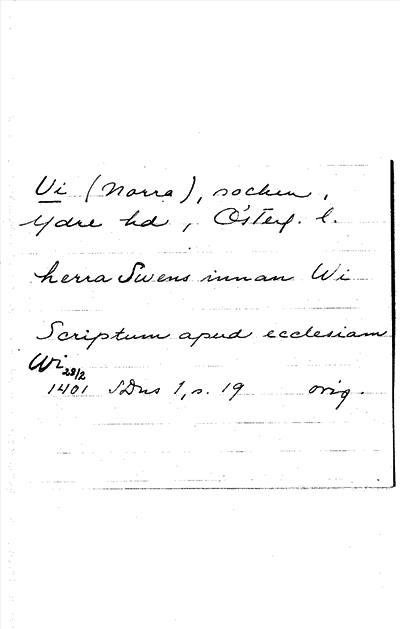 Vi (Norra), socken,
Ydre hd, Österg. l.
herra Swens innan Wi
Scriptum apud ecclesiam
Wi 23/2
1401 SDns 1, s. 19 orig.